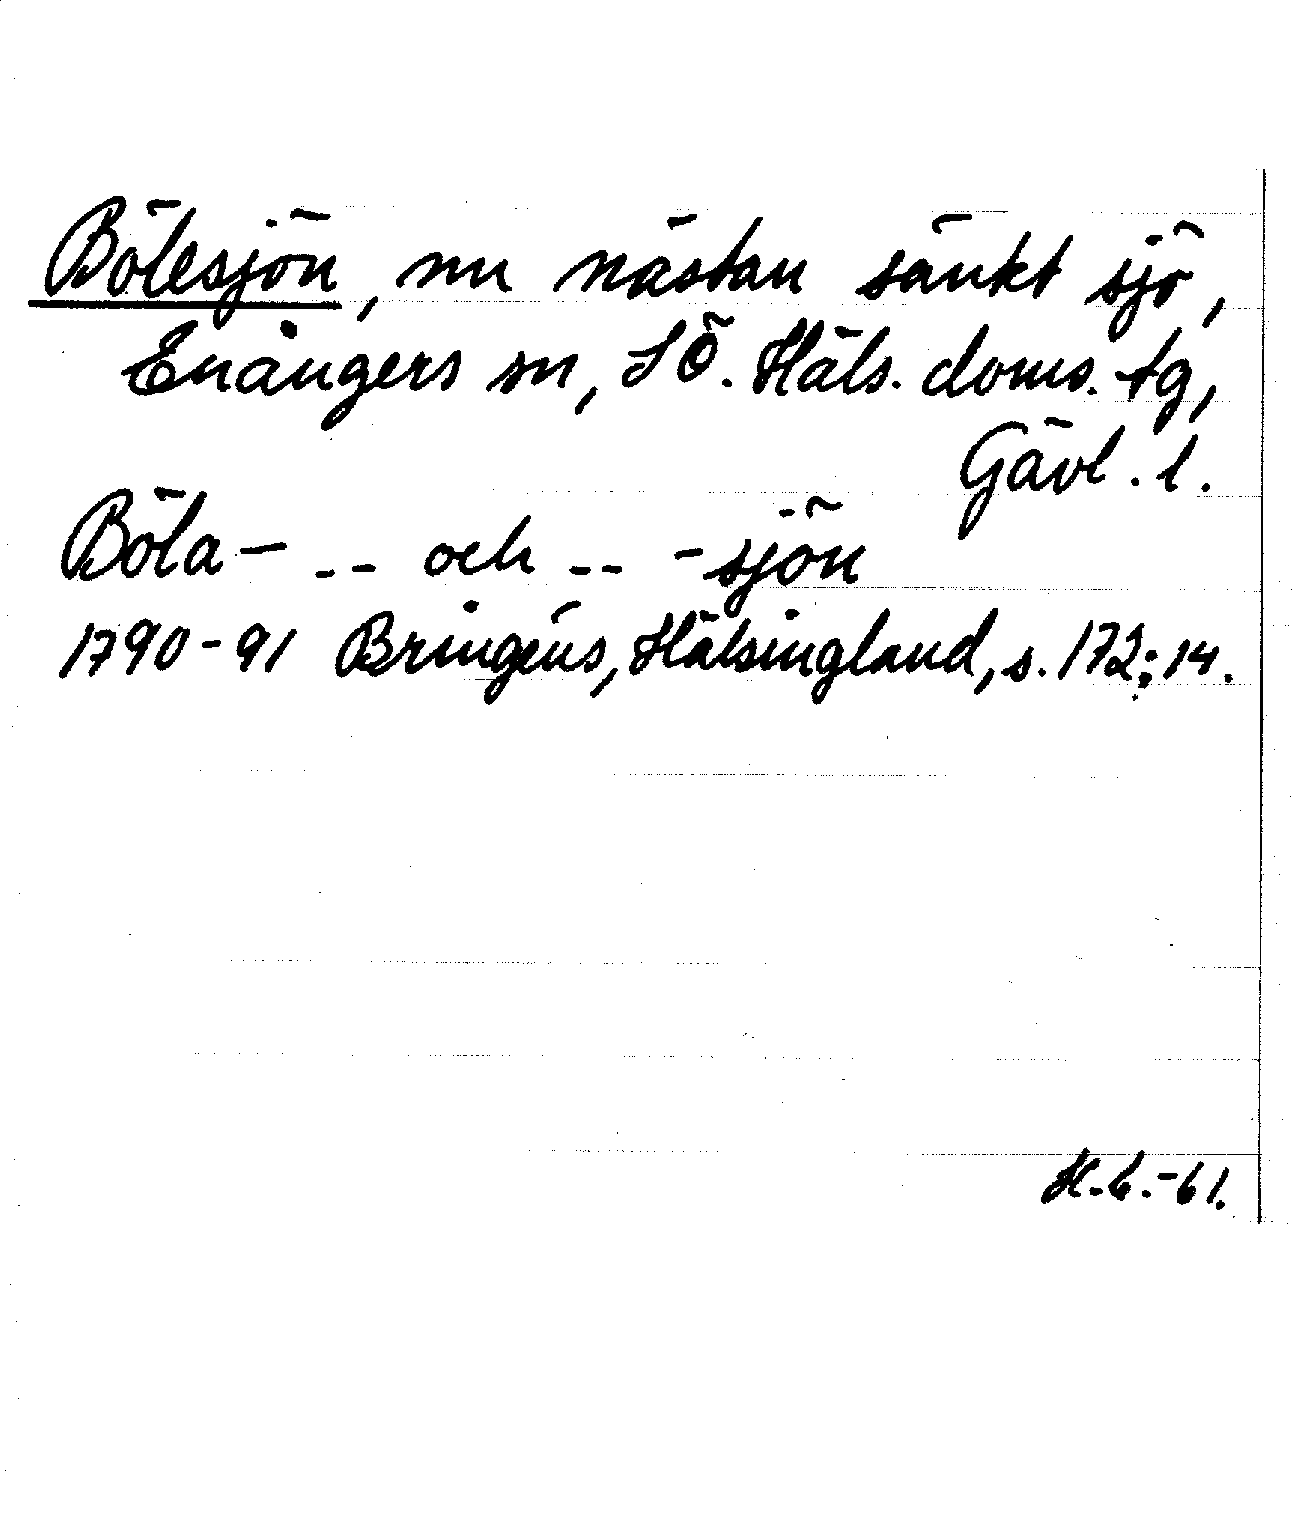 Bölesjön, nu nästan sänkt sjö,
Enångers sn, SÖ. Häls. doms. tg,
Gävl. l.
Böla- -- och -- -sjön
1790-91 Bringéus, Hälsingland, s. 172:14.
H.b.-61.